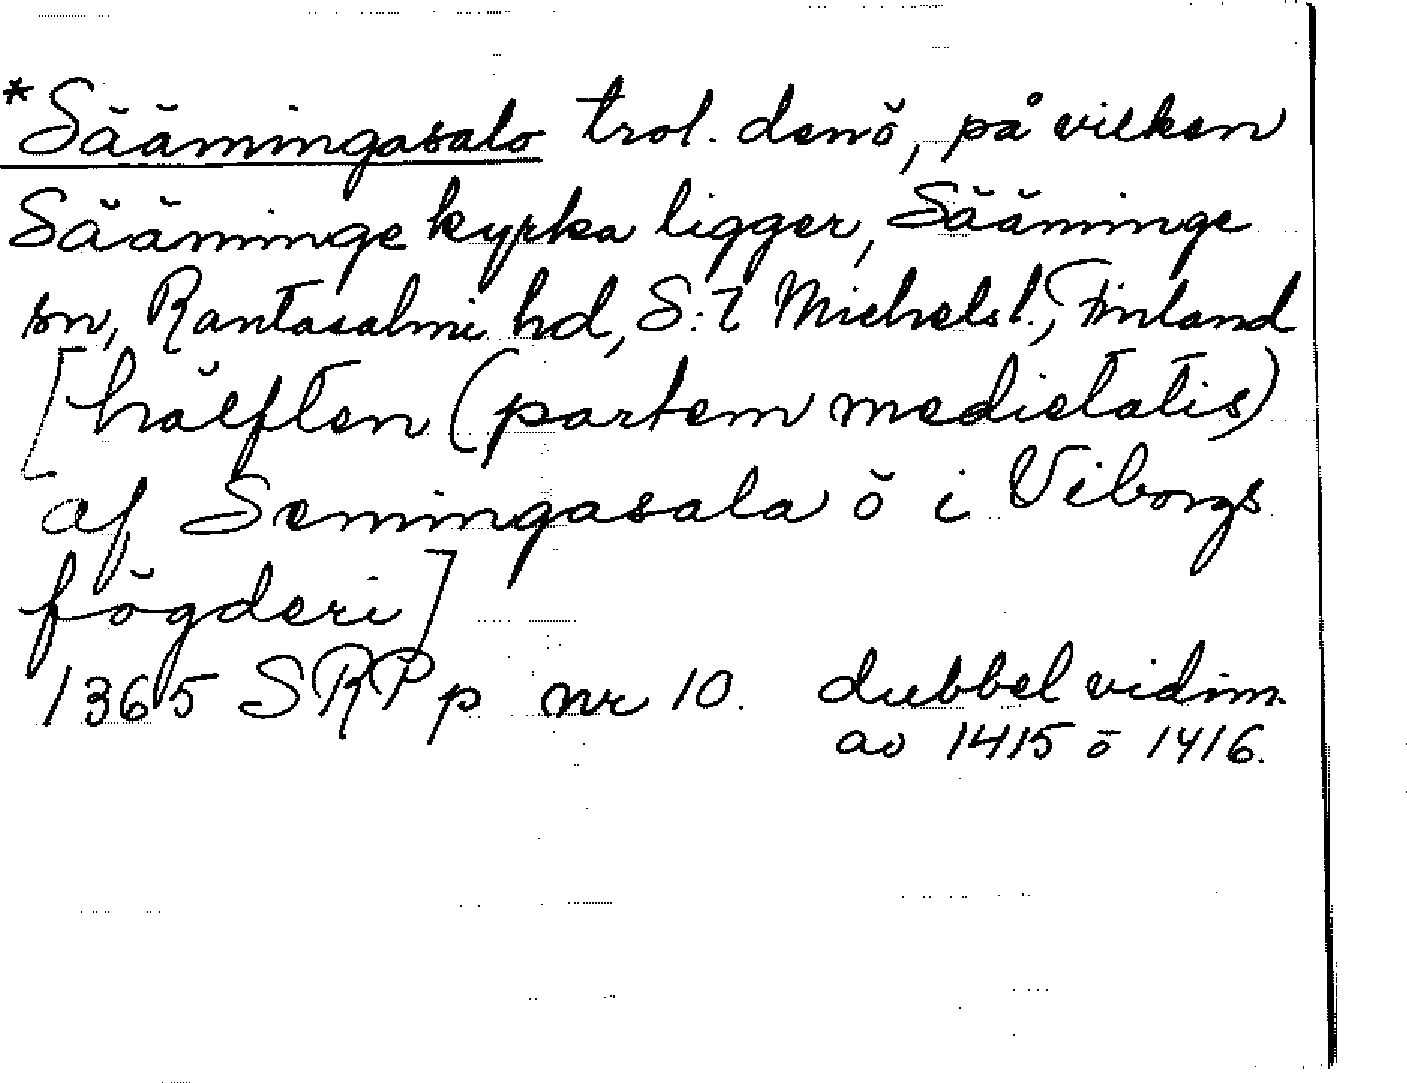 *Säämingasalo trol. den ö, på vilken
Sääminge kyrka ligger, Sääminge
sn, Rantasalmi hd, S:t Michels l., Finland
[hälften (partem medietatis)
af Semingasala ö i Viborgs
fögderi]
1365 SRP p nr 10. dubbel vidim.
av 1415 o 1416.